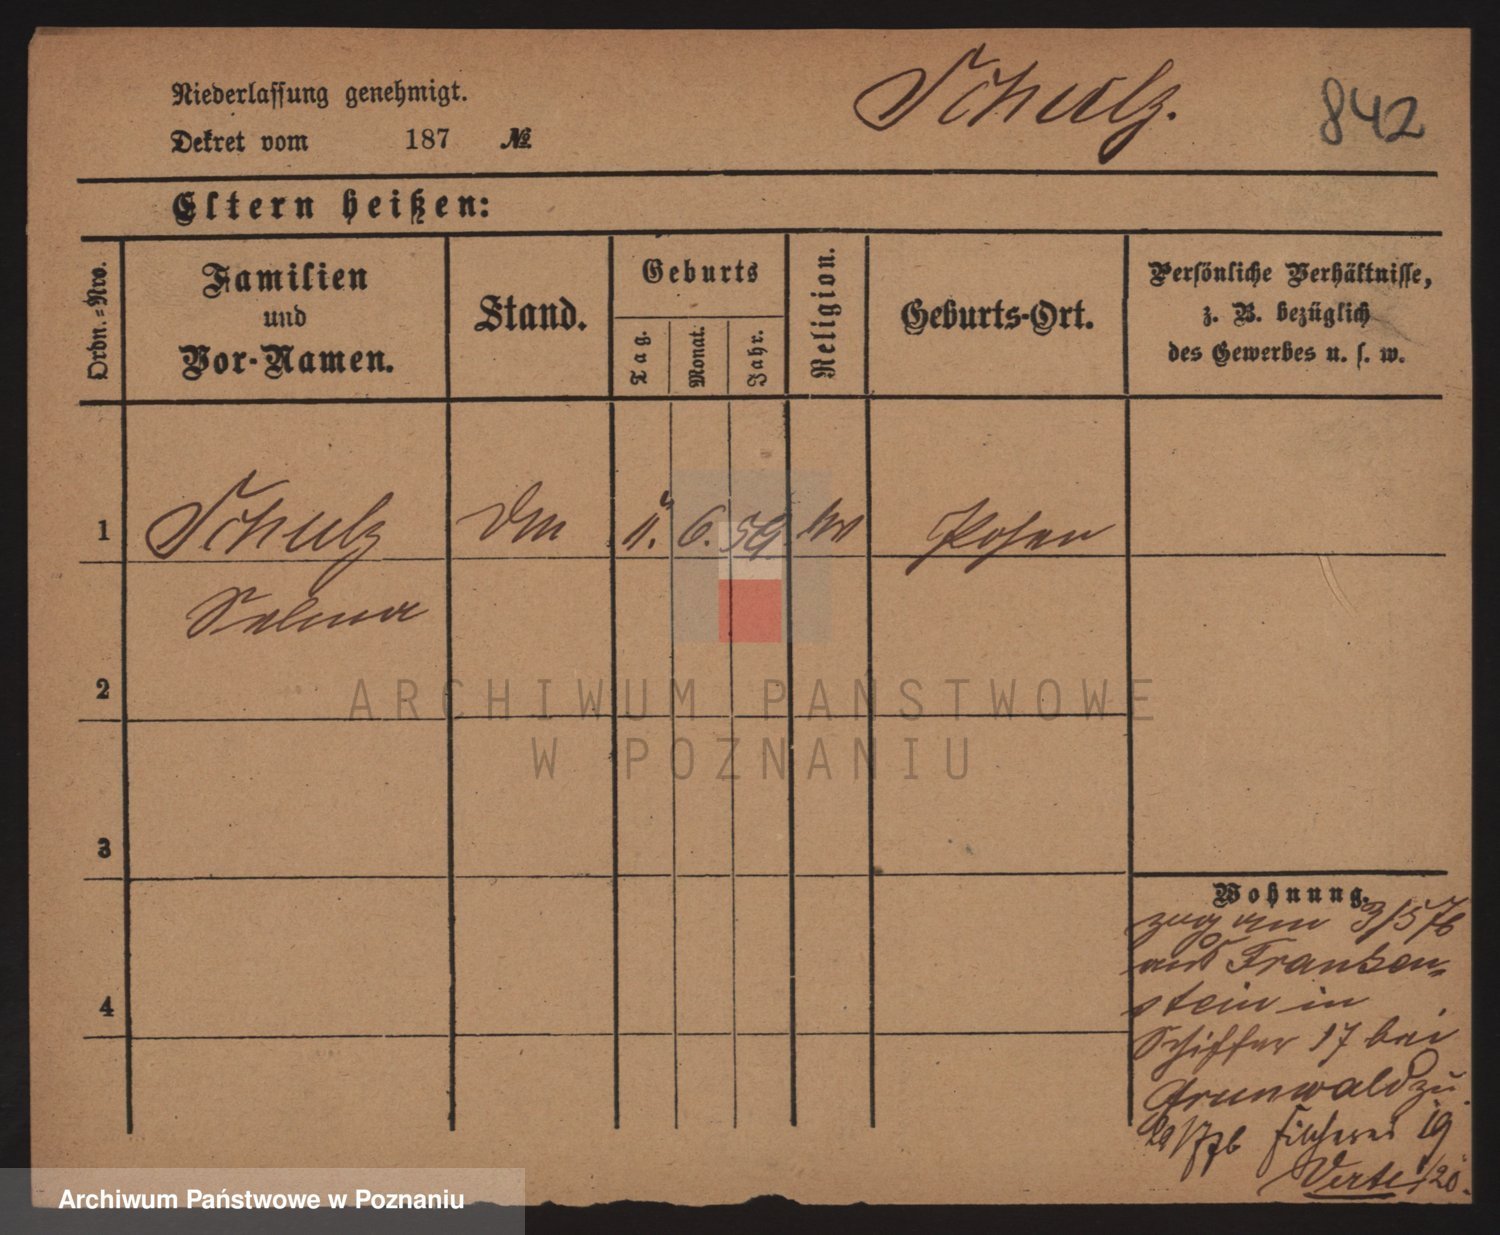 Niederlassung genehmigt.
Schulz.
842
Dekret vom 187 №
Eltern heißen:
Ordn.=Nro.
Familien
und
Vor-Namen.
Stand.
Geburts
Tag.
Monat.
Jahr.
Religion.
Geburts-Ort.
Persönliche Verhältnisse,
z. B. bezüglich
des Gewerbes u. s. w.
1 Schulz 11. 6. 59 Posen
Selma
2
ARCHIWUM PAŃSTWOWE
W POZNANIU
3
Wohnung.
zog am 3/5 76
aus Franken-
stein in
4
Schiffer 17 bei
Grunwald zu.
29/7 76 Fischerei 19
Archiwum Państwowe w Poznaniu